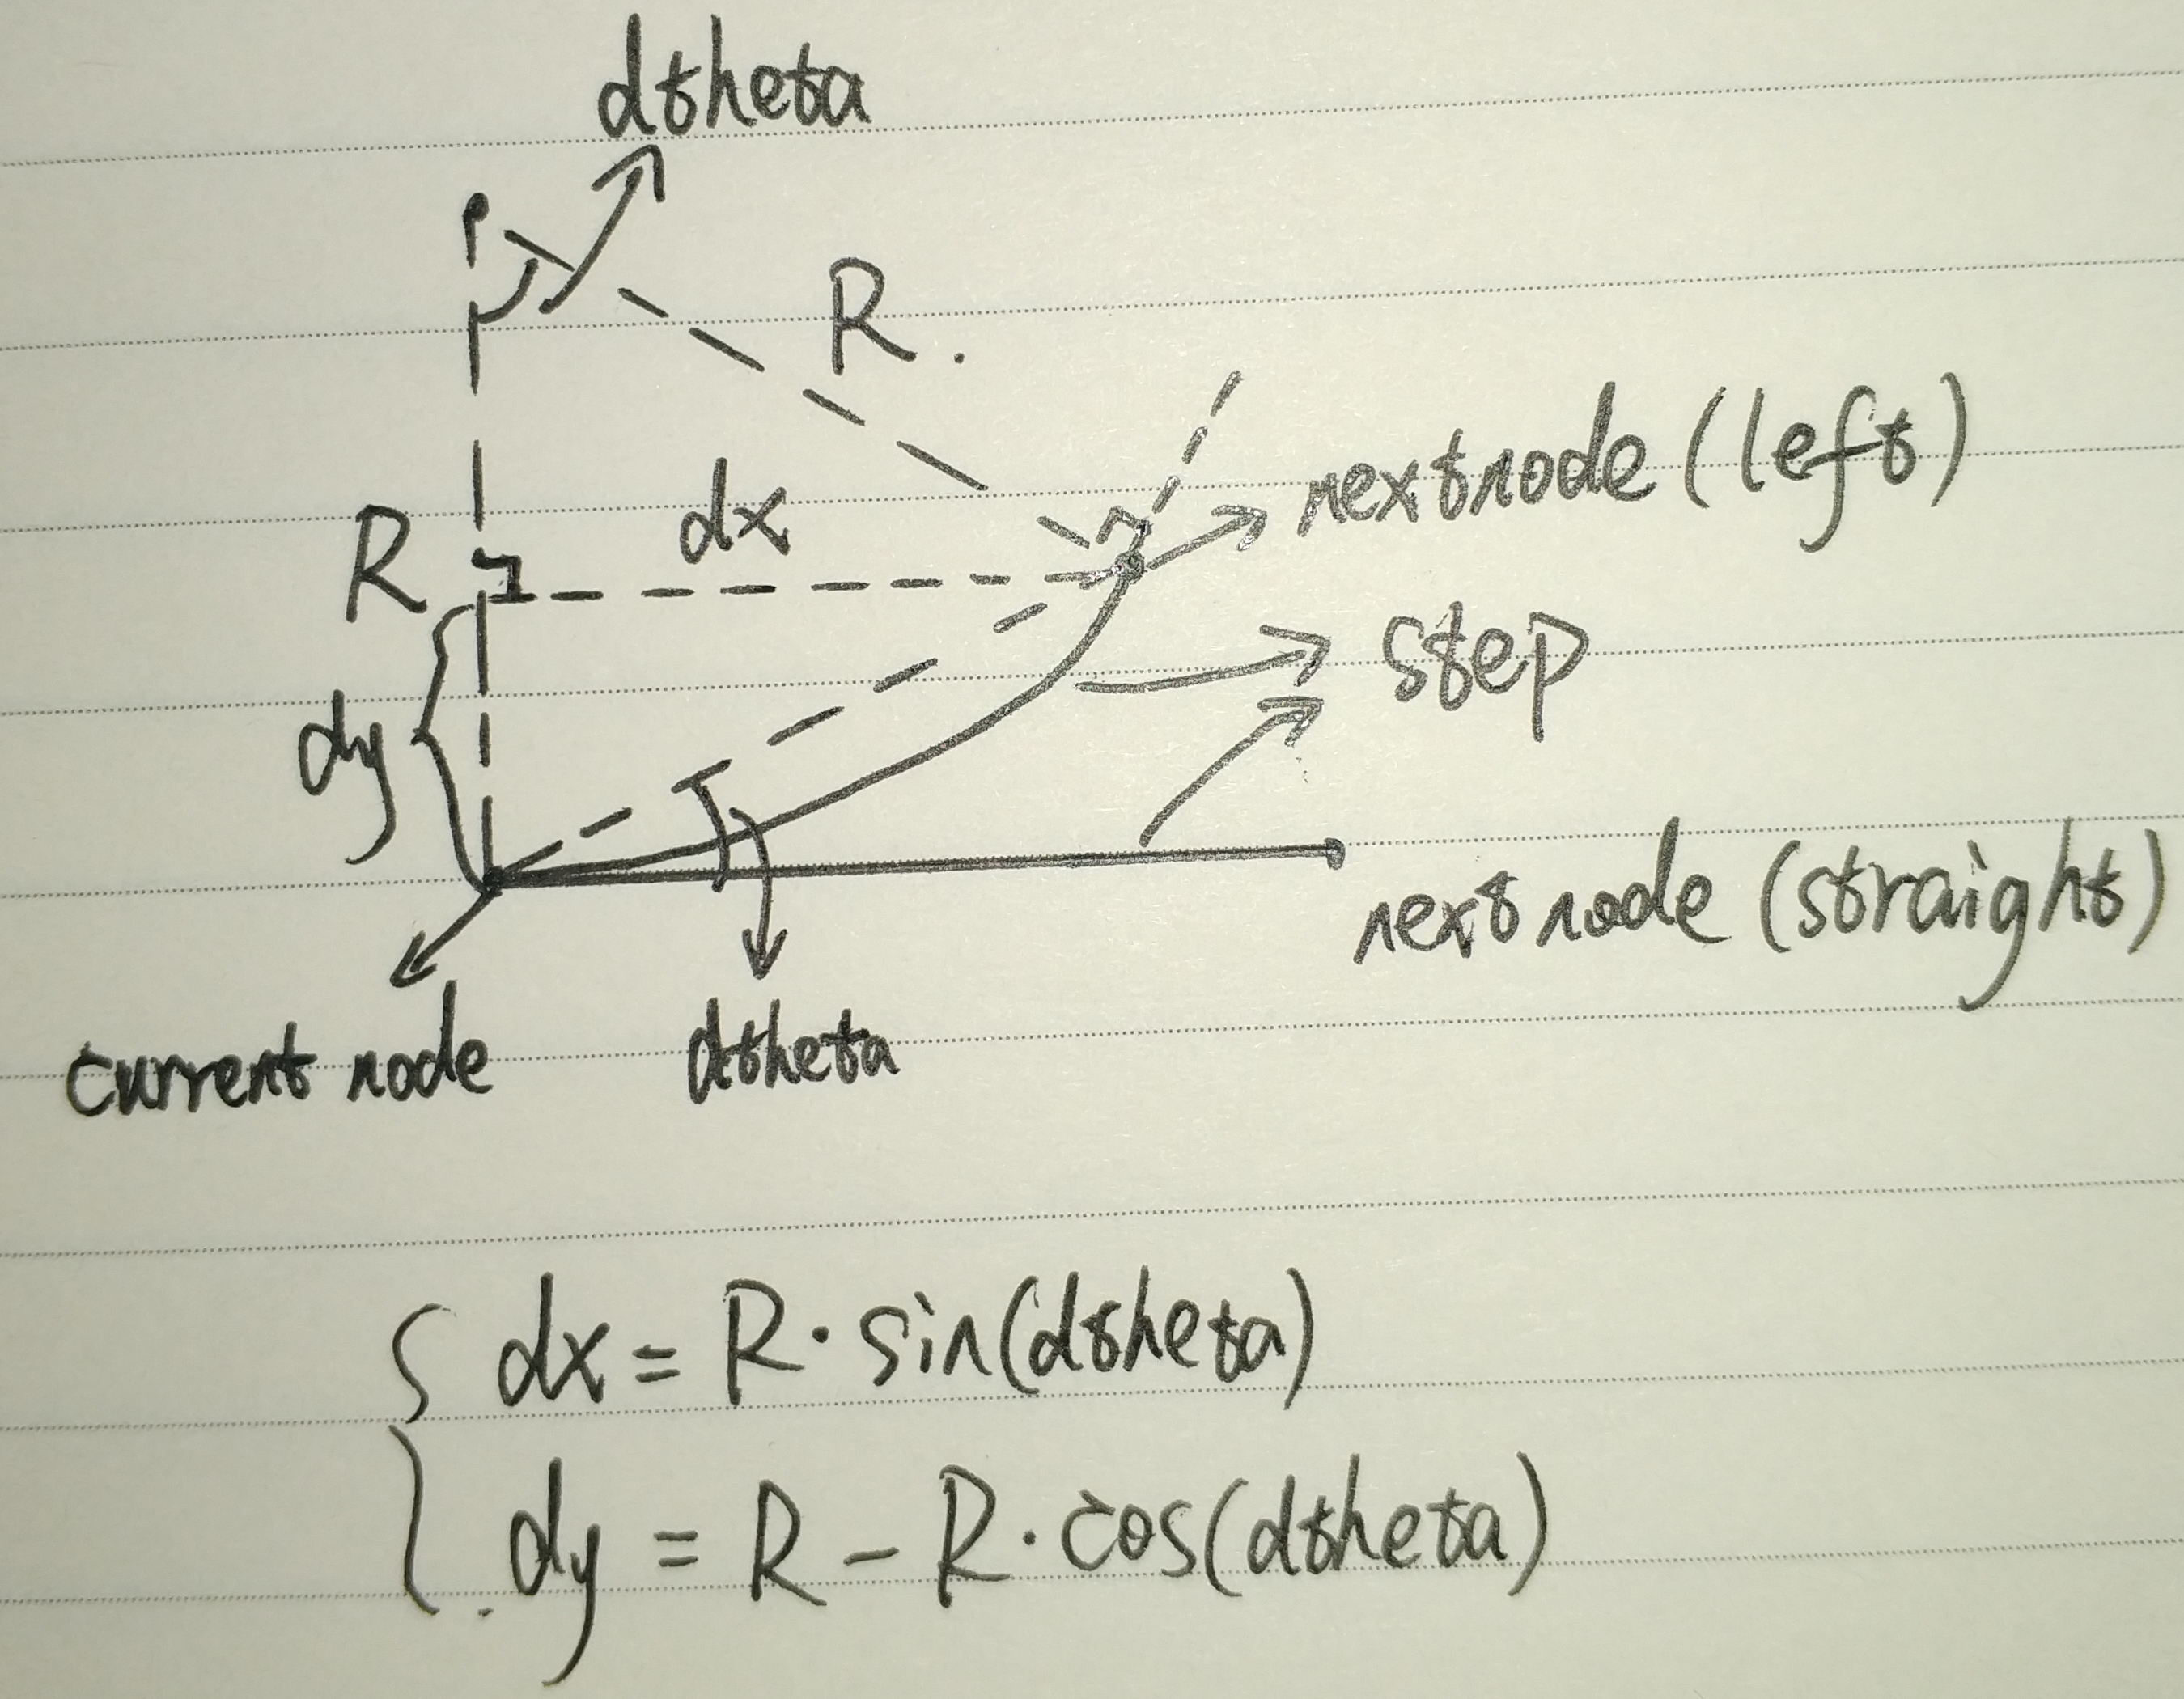 dtheta
R.
nextnode (left)
dx
R
step
dy
nextnode (straight)
current node
dtheta
dx = R · sin(dtheta)
dy = R - R · cos(dtheta)